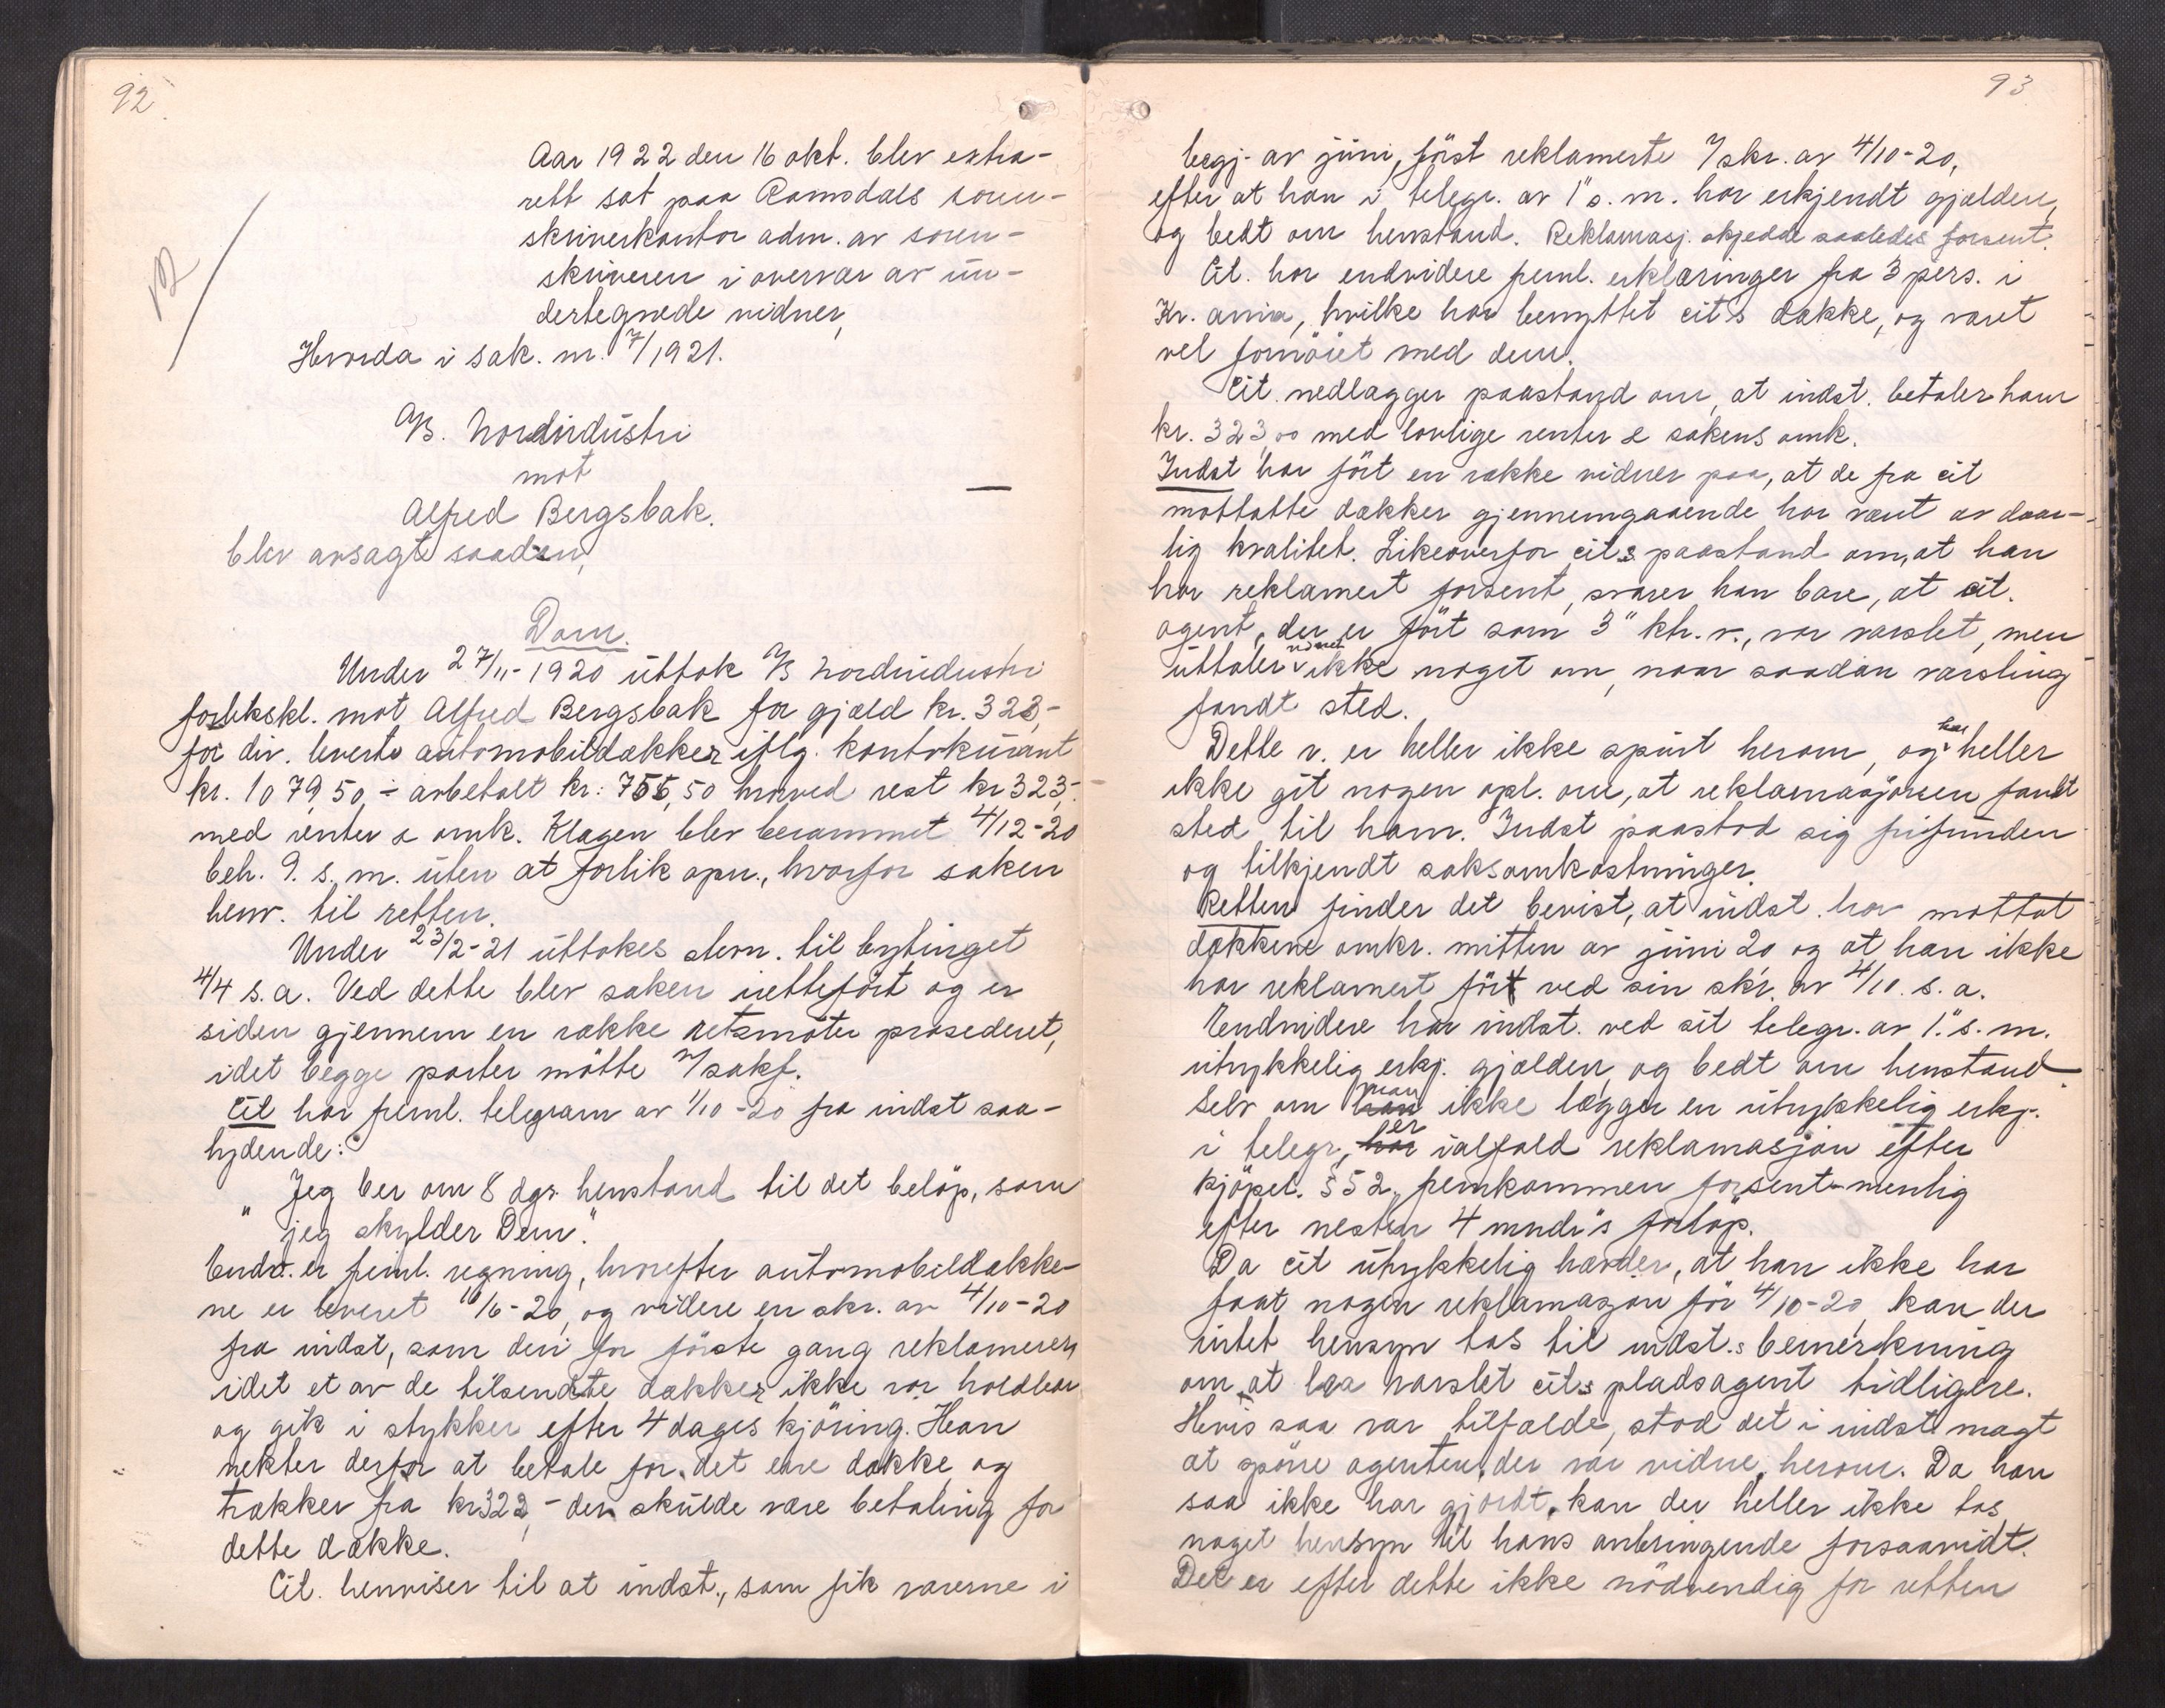 92.
Aar 1922 den 16 okt. blev extra-
rett sat paa Romsdals soren-
skriverkontor adm. av soren-
skriveren i overvær av un-
dertegnede vidner,
Hvorda i sak. nr. 7/1921.
A/S. Nordindustri
mot
Alfred Bergsbak.
blev avsagt saadan,
Dom.
Under 27/11-1920 uttok A/S Nordindustri
forlikskl. mot Alfred Bergsbak for gjæld kr. 323,-
for div. leverte automobildækker iflg. kontokurant
kr. 1079,50, ÷ avbetalt kr: 756,50 hvorved rest kr 323,-
med renter & omk. Klagen blev berammet 4/12-20
beh. 9. s. m. uten at forlik opn., hvorfor saken
henv. til retten.
Under 23/2-21 uttokes stevn. til bytinget
4/4 s.a. Ved dette blev saken itetteført og er
siden gjennem en række retsmøter prosederet,
idet begge parter møtte v/ sakf.
Cit har freml. telegram av 1/10-20 fra indst saa-
lydende:
" Jeg ber om 8 dgs. henstand til det beløp, som
" jeg skylder Dem".
Endv. er freml. regning, hvorefter automobildække-
ne er leveret 16/6-20, og videre en skr. av 4/10-20
fra indst, som deri for første gang reklamerer,
idet et av de tilsendte dækker ikke var holdbar
og gik i stykker efter 4 dages kjøring. Han
nekter derfor at betale for det ene dække og
trækker fra kr 322,- der skulde være betaling for
dette dække.
Cit. henviser til at indst., som fik varerne i
93
begj. av juni, først reklamerte v/ skr. av 4/10-20,
efter at han i telegr. av 1" s. m. har erkjendt gjælden,
og bedt om henstand. Reklamasj. skjedde saaledes forsent.
Cit. har endvidere freml. erklæringer fra 3 pers. i
Kr.ania, hvilke har benyttet cit's dække, og været
vel fornøiet med dem.
Cit. nedlægger paastand om, at indst. betaler ham
kr. 323,00 med lovlige renter & sakens omk.
Indst har ført en række vidner paa, at de fra cit
mottatte dækker gjennemgaaende har vært av daar-
lig kvalitet. Likeoverfor cit.s paastand om, at han
har reklamert forsent, svarer han bare, at cit.
agent, der er ført som 3" kh. v., var varslet, men
uttaler v ikke noget om, naar saadan varsling
fandt sted.
Dette v. er heller ikke spurt herom, og har heller
ikke git nogen opl. om, at reklamasjonen fandt
sted til ham. Indst paastod sig frifunden
og tilkjendt saksomkostninger.
Retten finder det bevist, at indst. har mottat
dækkene omkr. mitten av juni 20 og at han ikke
har reklamert før ved sin skr. av 4/10. s. a.
Endvidere har indst. ved sit telegr. av 1." s. m.
utrykkelig erkj. gjælden, og bedt om henstand.
Selv om han man ikke lægger en utrykkelig erkj.
i telegr., har er ialfald reklamasjon efter
kjøpel. § 52, fremkommen forsent - nemlig
efter nesten 4 mndr's forløp.
Da cit utrykkelig hævder, at han ikke har
faat nogen reklamasjon før 4/10-20, kan der
intet hensyn tas til indst.s bemerkning
om, at ha varslet cit.s pladsagent tidligere.
Hvis saa var tilfælde, stod det i indst magt
at spørre agenten, der var vidne, herom. Da han
saa ikke har gjordt, kan der heller ikke tas
noget hensyn til hans anbringende forsaavidt.
Det er efter dette ikke nødvendig for retten